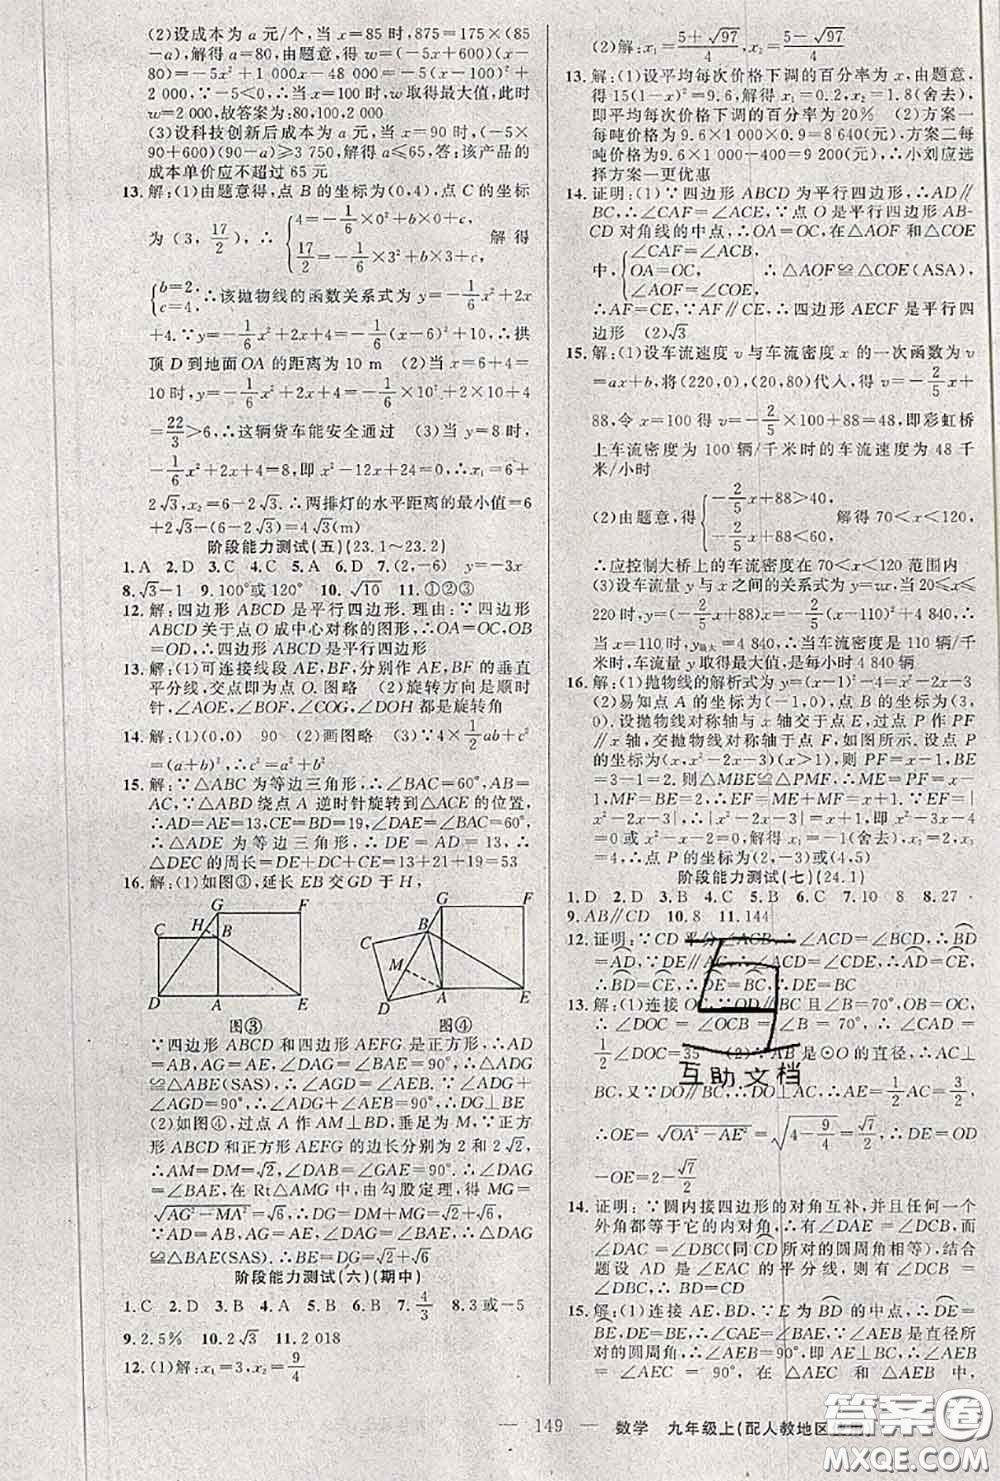 (2)设成本为 a 元/个,当 x=85 时,875=175×(85
-a),解得 a=80,由题意,得 w=(-5x+600)(x-80)
=-5x²+1 000x-48 000=-5(x-100)²+
2 000,∵-5<0,∴当 x=100 时,w 取得最大值,此时
w=2 000,故答案为:80,100,2 000
(3)设科技创新后成本为 a 元,当 x=90 时,(-5×
90+600)(90-a)≥3 750,解得 a≤65,答:该产品的
成本单价应不超过 65 元
13.解:(1)由题意得,点 B 的坐标为(0,4),点 C 的坐标
为(3,17/2),∴{4=-1/6×0²+b×0+c, 17/2=-1/6×3²+b×3+c, 解得
{b=2, c=4.∴该抛物线的函数关系式为 y=-1/6x²+2x
+4.∵y=-1/6x²+2x+4=-1/6(x-6)²+10,∴拱
顶 D 到地面 OA 的距离为 10 m (2)当 x=6+4=
10 时,y=-1/6x²+2x+4=-1/6×10²+2×10+4
=22/3>6,∴这辆货车能安全通过 (3)当 y=8 时,
-1/6x²+2x+4=8,即 x²-12x+24=0,∴x₁=6+
2√3,x₂=6-2√3.∴两排灯的水平距离的最小值=6
+2√3-(6-2√3)=4√3(m)
阶段能力测试(五)(23.1~23.2)
1.A 2.D 3.C 4.C 5.A 6.D 7.(2,-6) y=-3x
8.√3-1 9.100°或 120° 10.√10 11.①②③
12.解:四边形 ABCD 是平行四边形.理由:∵四边形
ABCD 关于点 O 成中心对称的图形,∴OA=OC,OB
=OD,∴四边形 ABCD 是平行四边形
13.解:(1)可连接线段 AE,BF,分别作 AE,BF 的垂直
平分线,交点即为 O.图略 (2)旋转方向是顺时
针,∠AOE,∠BOF,∠COG,∠DOH 都是旋转角
14.解:(1)(0,0) 90 (2)画图略 (3)∵4×1/2ab+c²
=(a+b)²,∴c²=a²+b²
15.解:∵△ABC 为等边三角形,∴∠BAC=60°,AB=
AC,∵△ABD 绕点 A 逆时针旋转到△ACE 的位置,
∴AD=AE=13,CE=BD=19,∠DAE=∠BAC=60°,
∴△ADE 为等边三角形,∴DE=AD=13,∴
△DEC 的周长=DE+DC+CE=13+21+19=53
16.解:(1)如图③,延长 EB 交 GD 于 H,
G F H C B D A E
图③
G F B C M D A E
图④
∵四边形 ABCD 和四边形 AEFG 是正方形,∴AD
=AB,AG=AE,∠DAG=∠BAE=90°,∴△ADG
≌△ABE(SAS),∴∠AGD=∠AEB,∵∠ADG+
∠AGD=90°,∴∠ADG+∠AEB=90°,∴DG⊥BE
(2)如图④,过点 A 作 AM⊥BD,垂足为 M,∵正方形
ABCD 和正方形 AEFG 的边长分别为 2 和 2√2,
∴AM=DM=√2,∠DAB=∠GAE=90°,∴∠DAG
=∠BAE,在 Rt△AMG 中,由勾股定理,得 MG=
√AG²-MA²=√6,∴DG=DM+MG=√2+√6,∵△DAG
≌△BAE(SAS).∴BE=DG=√2+√6
阶段能力测试(六)(期中)
1.C 2.D 3.C 4.D 5.A 6.B 7.4/3 8.3或-5
9.2.5% 10.2√3 11.2 018
12.(1)解:x₁=3,x₂=9/4
(2)解:x₁=5+√97/4,x₂=5-√97/4
13.解:(1)设平均每次价格下调的百分率为 x,由题意,
得 15(1-x)²=9.6,解得 x₁=0.2,x₂=1.8(舍去),即
平均每次价格下调的百分率为 20% (2)方案一
每吨价格为 9.6×1 000×0.9=8 640(元),方案二每
吨价格为 9.6×1 000-400=9 200(元),小刘应选
择方案一更优惠
14.证明:(1)∵四边形 ABCD 为平行四边形,∴AD∥
BC,∴∠CAF=∠ACE,∵点 O 是平行四边形 AB-
CD 对角线的中点,∴OA=OC,在△AOF 和△COE
中,{∠CAF=∠ACB, OA=OC, ∠AOF=∠COE, ∴△AOF≌△COE(ASA),
∴AF=CE,∵AF∥CE,∴四边形 AECF 是平行四
边形 (2)√3
15.解:(1)设车流速度 v 与车流密度 x 的一次函数为 v
=ax+b,将(220,0),(20,80)代入,得 v=-2/5x+
88,令 x=100 得 v=-2/5×100+88=48,即彩虹桥
上车流密度为 100 辆/千米时的车流速度为 48 千
米/小时
(2)由题意,得{-2/5x+88>40, -2/5x+88<60. 解得 70<x<120,
∴应控制大桥上的车流密度在 70<x<120 范围内
(3)设车流量 y 与 x 之间的关系式为 y=vx,当 20≤x≤
220 时,y=(-2/5x+88)x=-2/5(x-110)²+4 840,∴当
x=110 时,y最大=4 840,∴当车流密度是 110 辆/千
米时,车流量 y 取得最大值,是每小时 4 840 辆
16.解:(1)抛物线的解析式为 y=(x-1)²-4=x²-2x-3
(2)易知点 A 的坐标为(-1,0),点 B 的坐标为(3,
0),设抛物线对称轴与 x 轴交于点 E,过点 P 作 PF
∥x 轴,交抛物线对称轴于点 F,如图所示.设点 P 的
坐标为(x,x²-2x-3),PM=BM,则 PF=x-1,BE=
3-1=2.则△MBE≌△PMF,∴MF=BE=2,ME=PF=x-
1,∴EF=MF+ME=x+1,∴BE=2,∴MF=2=EF=|
x²-2x-3|,∴|x²-2x-3|=x+1,∴x²-x-4
=0 或 x²-x-2=0,解得 x₁=-1(舍去),x₂=2,x₃
=4,∴点 P 的坐标为(2,-3)或(4,5)
阶段能力测试(七)(24.1)
1.D 2.D 3.C 4.D 5.B 6.C 7.10 8 8.27
9.AB∥CD 10.8 11.144
12.证明:∵CD 平分∠ACB,∴∠ACD=∠BCD,∴BD
=AD,∵DE∥AC,∴∠ACD=∠CDE,∴AD=CE,
∴BD=CE,∴DE=BC,∴DE=BC
13.解:(1)连接 OC,∵OD∥BC 且∠B=70°,OB=OC,
∴∠DOC=∠OCB=∠B=70°,∴∠CAD=
1/2∠DOC=35° (2)∵AB 是⊙O 的直径,∴AC⊥
BC,又∵OD∥BC,∴OD⊥AC,∴AE=1/2AC=3/2,
∴OE=√OA²-AE²=√4-9/4=√7/2,∴DE=OD
-OE=2-√7/2
14.证明:∵圆内接四边形的对角互补,并且任何一个
外角都等于它的内对角,∴有∠DAE=∠DCB,而
∠DAC=∠DBC(同 CD 所对的圆周角相等),结合
题设 AD 是∠EAC 的平分线,则有∠DCB=
∠DBC,∴BD=CD
15.解:(1)连接 AE,BD,∵E 为 BD 的中点,∴DE=
BE,∴∠DAE=∠BAE,∵∠AEB 是直径所
对的圆周角,∴∠AEB=90°,即 AE⊥BC,∴
∠AEC=90°,在△AEC 和△AEB 中,
互助文档
— 149 — 数学 九年级上(配人教地区
答案圈
MXQE.COM